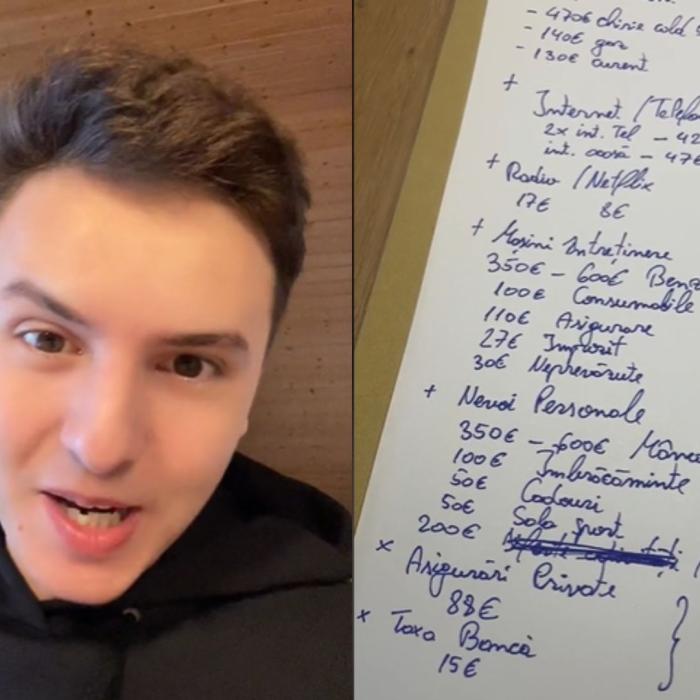 - 470€ chirie cold
- 140€ gaz
- 130€ curent
+
Internet / Telefo
2x int. Tel - 42
int. acasă - 47€
+ Radio / Netflix
17€ 8€
+ Mașini Întreținere
350€ - 600€ Benz
100€ Consumabile
110€ Asigurare
27€ Impozit
30€ Neprevăzute
+ Nevoi Personale
350€ - 600€ Mânca
100€ Îmbrăcăminte
50€ Cadouri
50€ Sala sport
200€
x Asigurări Private
88€
x Taxa Bancă
15€